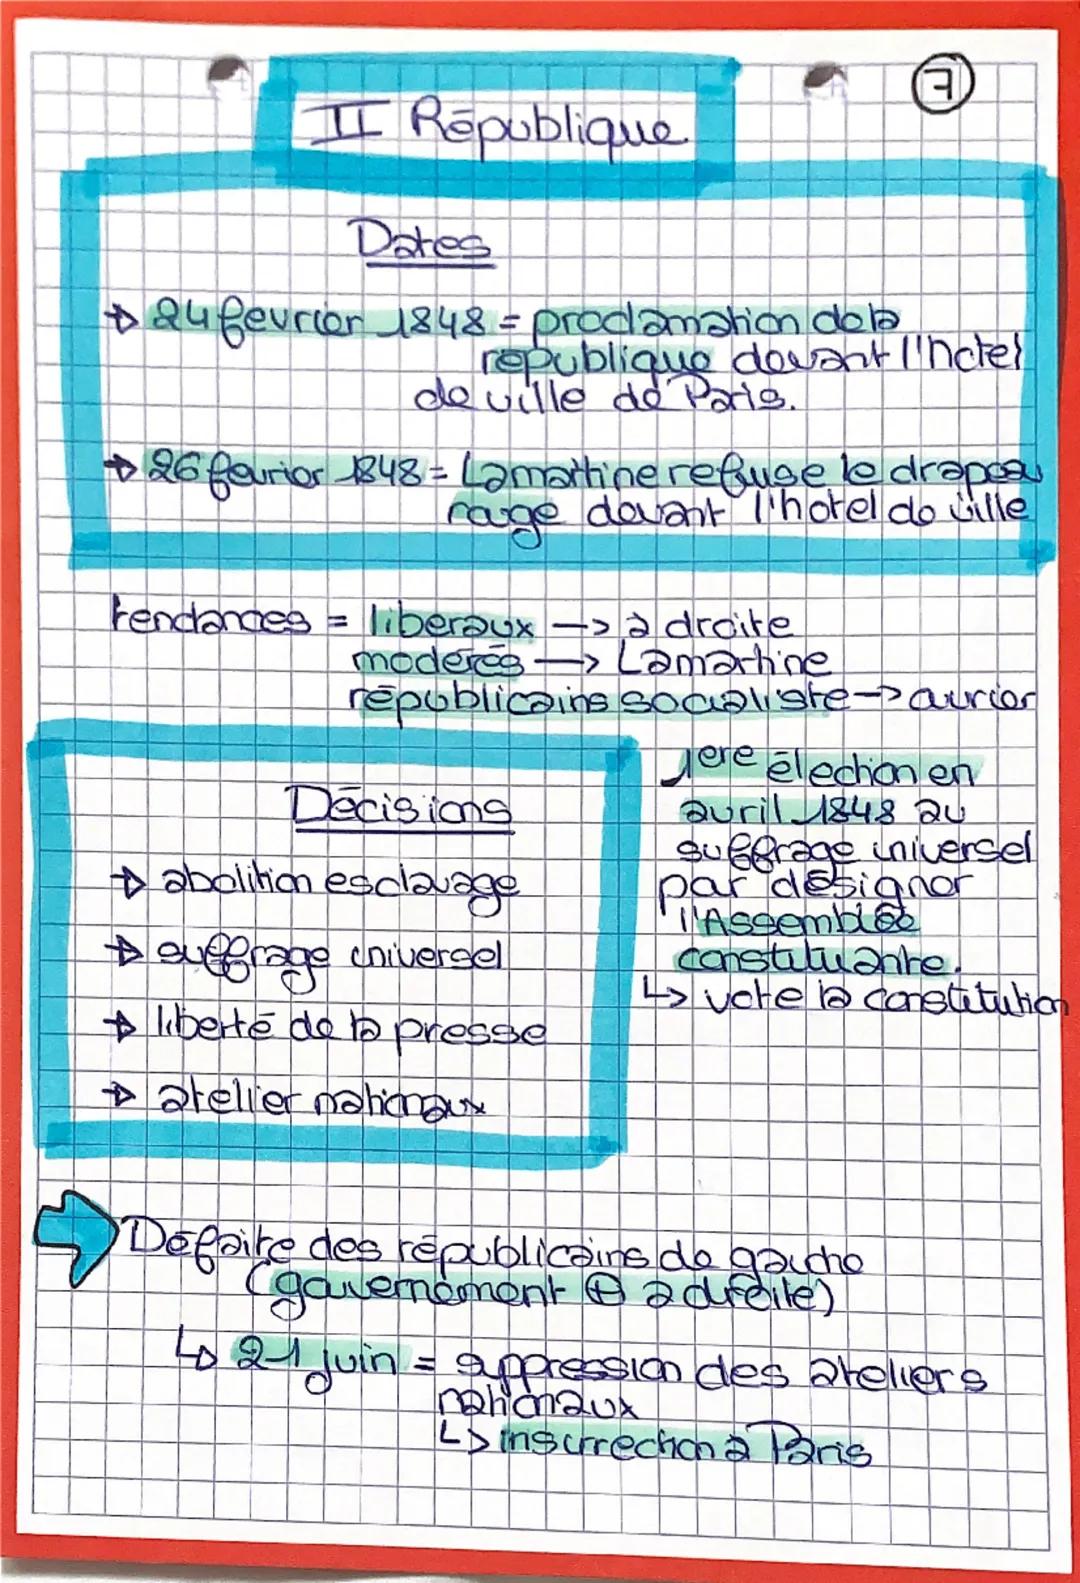 7
II République
Dates
→ 24 fevrier 1848 = proclamation de la
république devant l'hotel
de ville de Paris.
→ 26 fevrier 1848 = Lamartine refuse le drapeau
rouge devant l'hotel de ville
tendances = liberaux → à droite
modérés → Lamartine
républicains socialiste → ouvrier
1ere élection en
avril 1848 au
suffrage universel
par désigner
l'Assemblée
constituante.
↳ vote la constitution
Décisions
→ abolition esclavage
→ suffrage universel
→ liberté de la presse
→ atelier nationaux
Défaite des républicains de gauche
(gouvernement ⊕ a droite)
↳ 21 juin = suppression des ateliers
nationaux
↳ insurrection à Paris